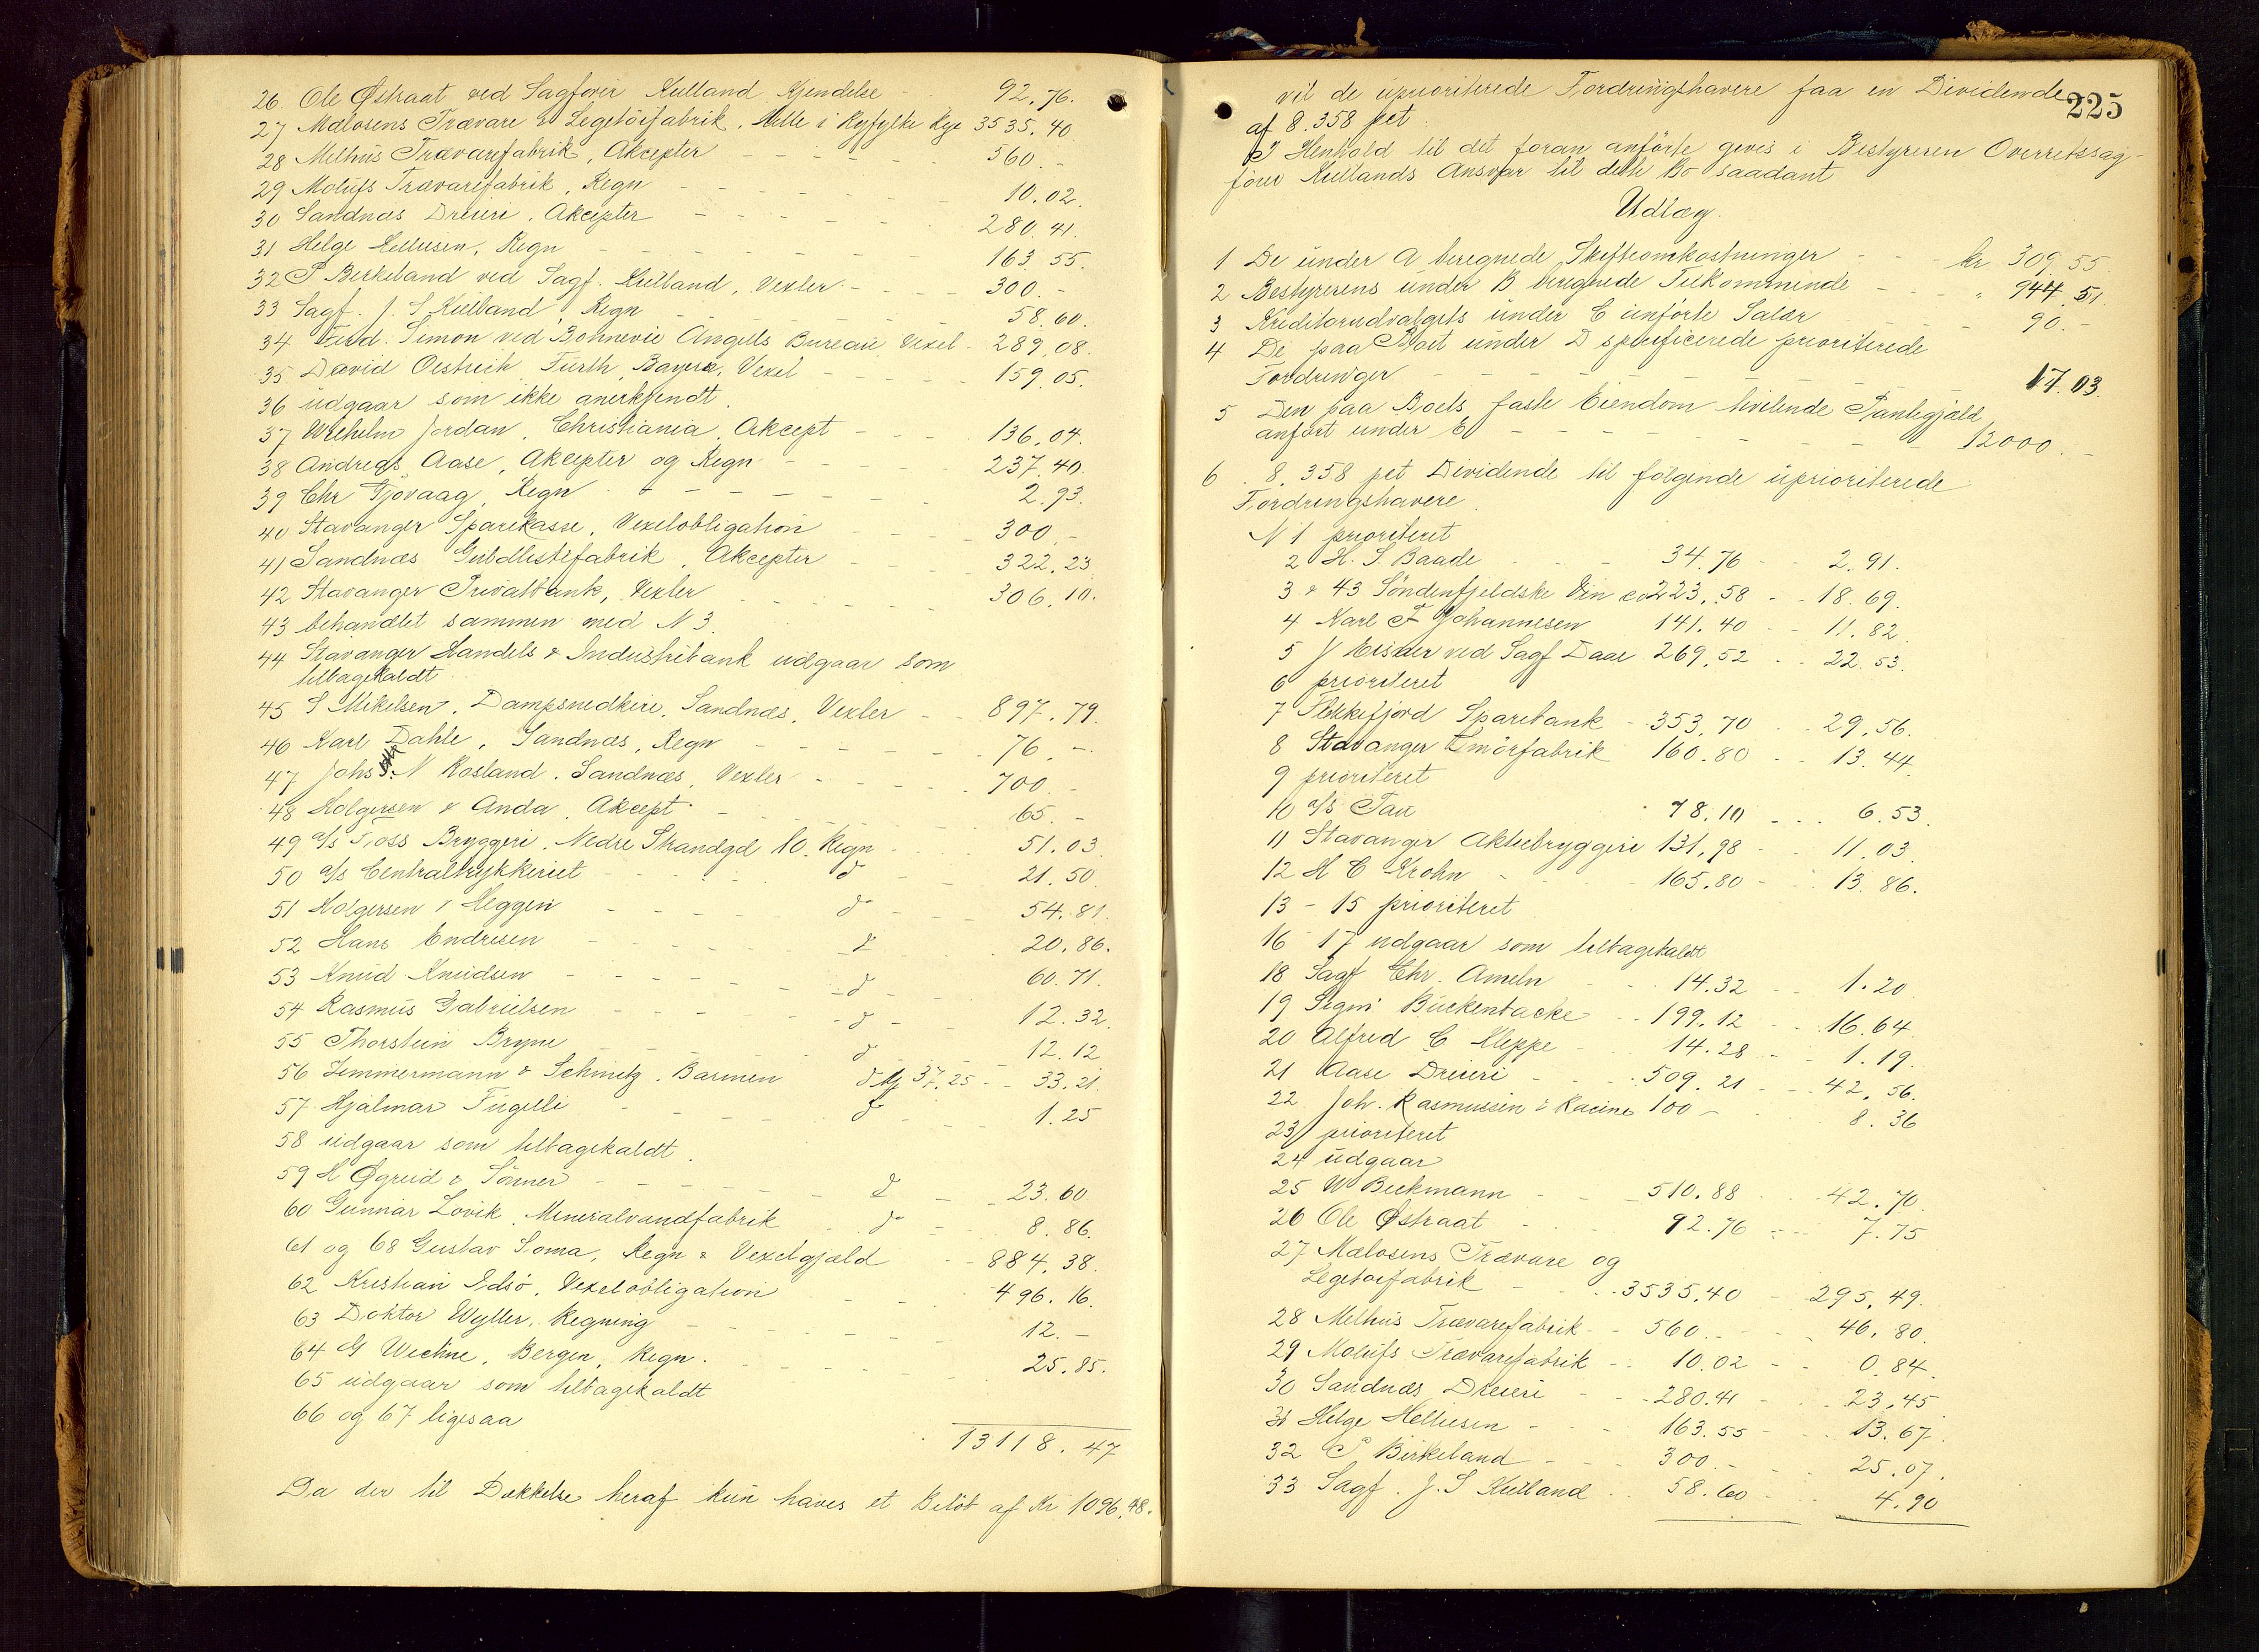 26. Ole Østraat ved Sagförer Kulland Kjendelse 92.76.
27 Mælosens Trævare & Legetöifabrik, Helle i Ryfylke Rgn 3535.40
28 Melhus Trævarefabrik, Akcepter - - - - 560.-
29 Molufs Trævarefabrik, Regn - - - - 10.02.
30 Sandnæs Dreieri, Akcepter - - - - 280.41.
31 Helge Helliesen, Regn - - - - 163.55.
32 P Birkeland ved Sagf. Kulland, Vexler - - - 300.-
33 Sagf. J. S Kulland, Regn - - - - 58.60.
34 Ferd. Simon ved Bonnevie Angells Bureau Vexel - 289.08.
35 David Oestrich Fürth, Bayern, Vexel - - - 159.05.
36 udgaar som ikke anerkjendt.
37 Wilhelm Jordan, Christiania, Akcept - - - 136.04.
38 Andreas Aase, Akcepter og Regn - - - 237.40.
39 Chr Gjövaag, Regn - - - - 2.93.
40 Stavanger Sparekasse, Vexelobligation - - - 300.-
41 Sandnæs Guldlistefabrik, Akcepter - - - 322.23
42 Stavanger Privatbank, Vexler - - - 306.10.
43 behandlet sammen med N 3.
44 Stavanger Handels & Industribank udgaar som
tilbagekaldt.
45 S Mikelsen, Dampsnedkeri, Sandnæs, Vexler - - 897.79.
46 Karl Dahle, Sandnæs, Regn - - - - 76.-
47 Johs. N Rosland, Sandnæs, Vexler - - - 700.-
48 Holgersen & Anda, Akcept - - - - 65.-
49 A/s Toss Bryggeri, Nedre Strandgd 10. Regn - - 51.03
50 A/s Centraltrykkeriet - - - - do - - 21.50
51 Holgersen & Heggen - - - - do - - 54.81.
52 Hans Endresen - - - - do - - 20.86.
53 Knud Knudsen - - - - do - - 60.71.
54 Rasmus Gabrielsen - - - - do - - 12.32.
55 Thorstein Bryne - - - - do - - 12.12
56 Zimmermann & Schmitz, Barmen do M 37.25 - - 33.21.
57 Hjalmar Fugelli - - - - do - - 1.25
58 udgaar som tilbagekaldt.
59 H Øgreid & Sönner - - - - do - - 23.60
60 Gunnar Lövik, Mineralvandfabrik - do - - 8.86.
61 og 68 Gustav Soma, Regn & Vexelgjæld - - 884.38.
62 Kristian Edsö, Vexelobligation - - - 496.16.
63 Doktor Wyller, Regning - - - - 12.-
64 G Wiethe, Bergen, Regn. - - - - 25.85.
65 udgaar som tilbagekaldt
66 og 67 ligesaa
13118.47
Da der til Dækkelse heraf kun haves et Belöb af Kr 1096.48.
225
vil de uprioriterede Fordringshavere faa en Dividende
af 8.358 pct.
I Henhold til det foran anförte gives i Bestyreren Overretssag-
förer Kullands Ansvar til dette Bo saadant
Udlæg.
1 De under A beregnede Skifteomkostninger - - - kr 309.55
2 Bestyrerens under B beregnede Tilkommende - - - " 944.51
3 Kreditorudvalgets under C anförte Salær - - - 90.-
4 De paa Boet under D specificerede prioriterede
Fordringer - - - - 17.03.
5 Den paa Boets faste Eiendom hvilende Pantegjæld
anfört under E - - - - 12000.-
6 . 8.358 pct Dividende til fölgende uprioriterede
Fordringshavere.
N 1 prioriteret
2 H. S. Baade - - - 34.76 - - 2.91.
3 & 43 Söndenfjeldske Vin co 223.58 - - 18.69.
4 Karl F Johannesen 141.40 - - 11.82.
5 J Eisner ved Sagf Daae 269.52 - - 22.53.
6 prioriteret
7 Flekkefjord Sparebank - 353.70 - - 29.56.
8 Stavanger Smörfabrik 160.80 - - 13.44.
9 prioriteret
10 A/s Tau - 78.10 - - - 6.53.
11 Stavanger Aktiebryggeri 131.98 - - 11.03.
12 H C Krohn - - - 165.80 - - 13.86.
13 - 15 prioriteret
16 17 udgaar som tilbagekaldt
18 Sagf Chr. Ameln - - 14.32 - - 1.20
19 Segm Buckentacke - - 199.12 - - 16.64
20 Alfred C Kleppe - - 14.28 - - 1.19.
21 Aase Dreieri - - 509.21 - - 42.56.
22 Joh. Rasmussen & Racine 100 - 8.36
23 prioriteret
24 udgaar
25 W Beckmann - - 510.88 - - 42.70.
26 Ole Østraat - - - 92.76 - - 7.75
27 Mælosens Trævare og
Legetöifabrik - - - 3535.40 - 295.49.
28 Melhus Trævarefabrik - - 560. - - - 46.80.
29 Molufs Trævarefabrik - - 10.02 - - 0.84.
30 Sandnæs Dreieri - - 280.41 - - 23.45
31 Helge Helliesen - - - 163.55 - - 13.67.
32 P Birkeland - - - 300.- - - 25.07.
33 Sagf. J. S Kulland - - 58.60 - - 4.90